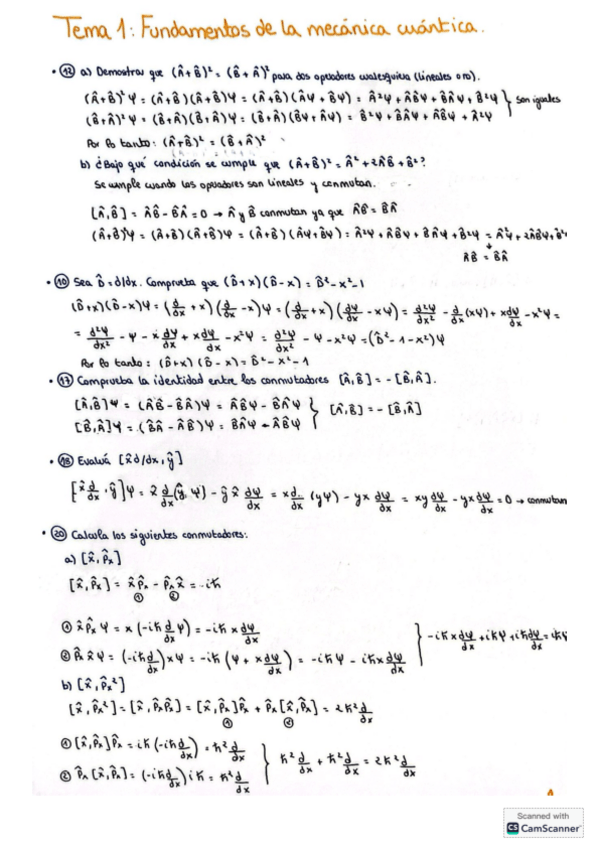 Tema 1: Fundamentos de la mecánica cuántica.
• ⑫ a) Demostrar que (Â+B̂)² = (B̂+Â)² para dos operadores cualesquiera (lineales o no).
(Â+B̂)²Ψ = (Â+B̂)(Â+B̂)Ψ = (Â+B̂)(ÂΨ+B̂Ψ) = Â²Ψ + ÂB̂Ψ + B̂ÂΨ + B̂²Ψ } son iguales
(B̂+Â)²Ψ = (B̂+Â)(B̂+Â)Ψ = (B̂+Â)(B̂Ψ+ÂΨ) = B̂²Ψ + B̂ÂΨ + ÂB̂Ψ + Â²Ψ
Por lo tanto: (Â+B̂)² = (B̂+Â)²
b) ¿Bajo qué condición se cumple que (Â+B̂)² = Â² + 2ÂB̂ + B̂²?
Se cumple cuando los operadores son lineales y conmutan.
[Â,B̂] = ÂB̂ - B̂Â = 0 → Â y B̂ conmutan ya que ÂB̂ = B̂Â
(Â+B̂)²Ψ = (Â+B̂)(Â+B̂)Ψ = (Â+B̂)(ÂΨ+B̂Ψ) = Â²Ψ + ÂB̂Ψ + B̂ÂΨ + B̂²Ψ = Â²Ψ + 2ÂB̂Ψ + B̂²Ψ
↓
ÂB̂ = B̂Â
• ⑩ Sea D̂ = d/dx. Comprueba que (D̂+x)(D̂-x) = D̂²-x²-1
(D̂+x)(D̂-x)Ψ = (d/dx + x)(d/dx - x)Ψ = (d/dx + x)(dΨ/dx - xΨ) = d²Ψ/dx² - d/dx (xΨ) + x dΨ/dx - x²Ψ =
= d²Ψ/dx² - Ψ - x dΨ/dx + x dΨ/dx - x²Ψ = d²Ψ/dx² - Ψ - x²Ψ = (D̂²-1-x²)Ψ
Por lo tanto: (D̂+x)(D̂-x) = D̂²-x²-1
• ⑰ Comprueba la identidad entre los conmutadores [Â,B̂] = -[B̂,Â].
[Â,B̂]Ψ = (ÂB̂ - B̂Â)Ψ = ÂB̂Ψ - B̂ÂΨ } [Â,B̂] = -[B̂,Â]
[B̂,Â]Ψ = (B̂Â - ÂB̂)Ψ = B̂ÂΨ - ÂB̂Ψ
• ⑱ Evaluá [x̂d/dx, ŷ]
[x̂ d/dx, ŷ]Ψ = x̂ d/dx (ŷΨ) - ŷ x̂ dΨ/dx = x d/dx (yΨ) - yx dΨ/dx = xy dΨ/dx - yx dΨ/dx = 0 → conmutan
• ⑳ Calcula los siguientes conmutadores:
a) [x̂, p̂x]
[x̂, p̂x] = x̂p̂x - p̂xx̂ = -iħ
① ②
① x̂p̂xΨ = x(-iħ d/dx Ψ) = -iħx dΨ/dx } -iħx dΨ/dx + iħΨ + iħ dΨ/dx = iħΨ
② p̂xx̂Ψ = (-iħ d/dx)xΨ = -iħ(Ψ + x dΨ/dx) = -iħΨ - iħx dΨ/dx
b) [x̂, p̂x²]
[x̂, p̂x²] = [x̂, p̂xp̂x] = [x̂, p̂x]p̂x + p̂x[x̂, p̂x] = 2ħ² d/dx
① ②
① [x̂, p̂x]p̂x = iħ(-iħ d/dx) = ħ² d/dx } ħ² d/dx + ħ² d/dx = 2ħ² d/dx
② p̂x[x̂, p̂x] = (-iħ d/dx)iħ = ħ² d/dx
Scanned with
CS CamScanner